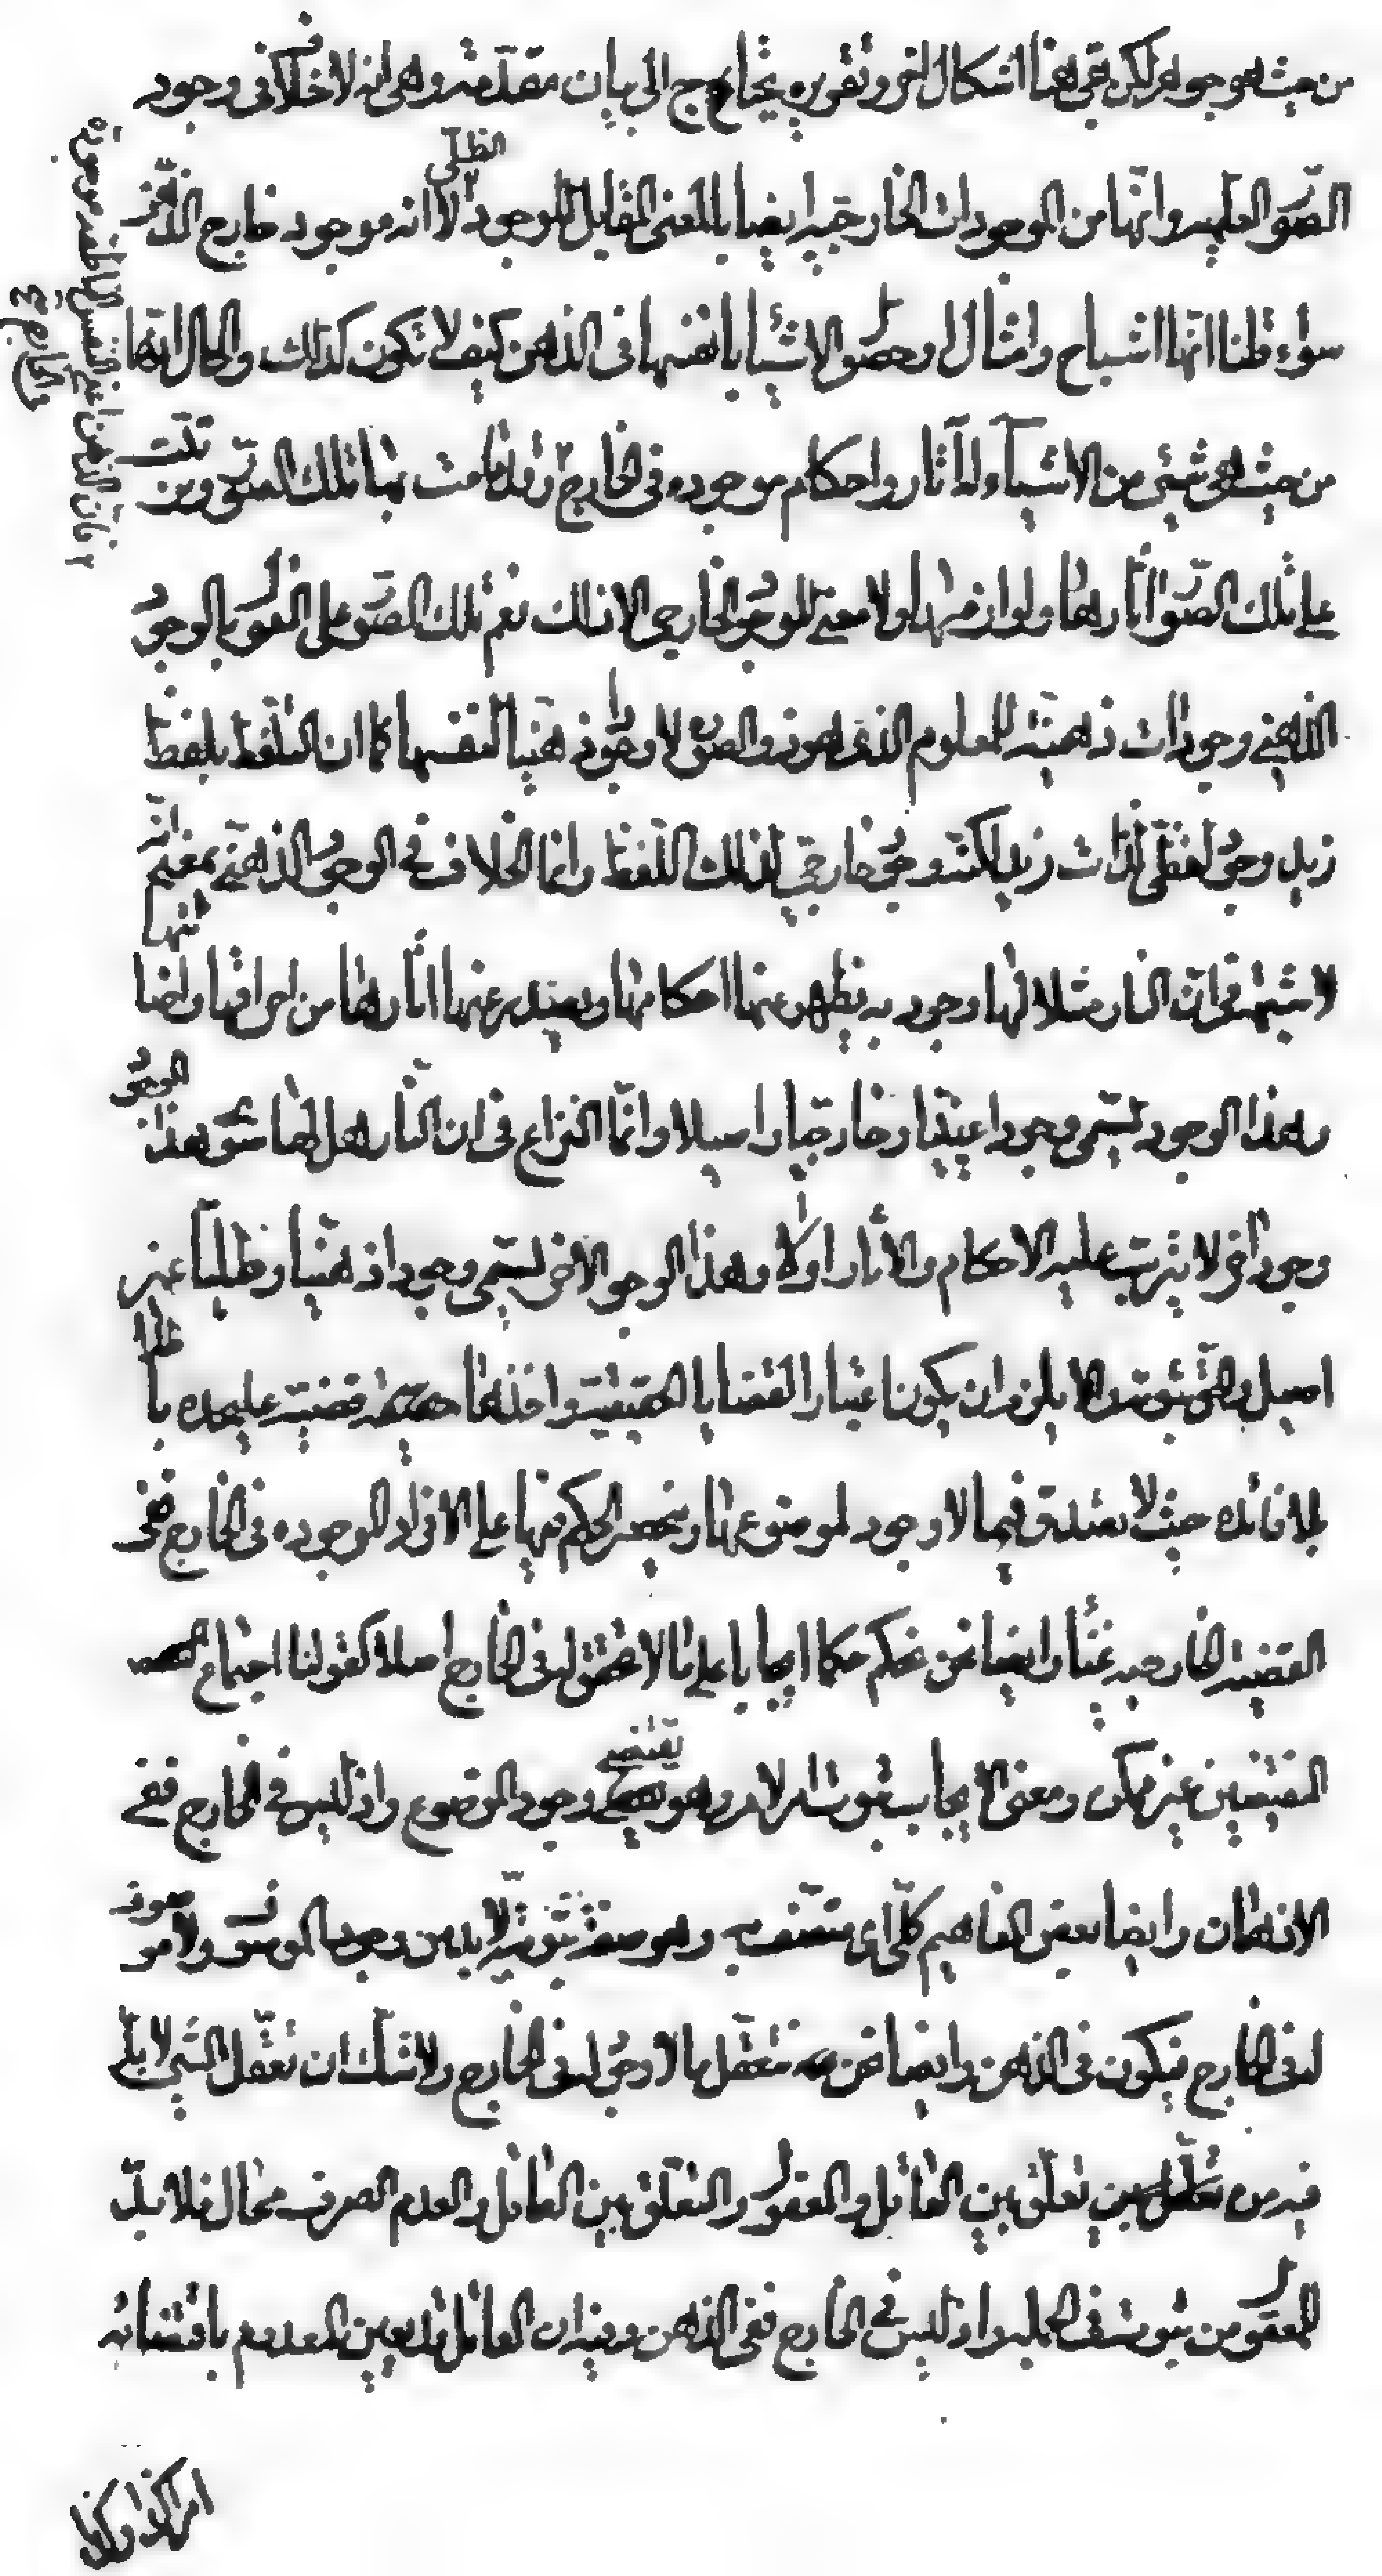 من حيث هو جوهر لكن بقى هنا اشكال اخر وتقريره يحتاج الى بيان مقدمة وهى انه لا خلاف فى وجود
الصور العلمية وانها من الموجودات الخارجية ايضا بالمعنى المقابل للوجود الظلى لا انه موجود خارج الذهن
سواء قلنا انها اشباح وامثال او حصول الاشياء بانفسها فى الذهن كيف لا تكون كذلك والحال انها
من حيث هى شيئ من الاشياء ولها آثار واحكام موجوده فى الخارج قد قامت بها تلك الصور وترتبت
على تلك الصور اثارها ولوازمها ولا معنى للوجود الخارجى الا ذلك نعم تلك الصور على القول بالوجود
الذهنى وجودات ذهنية للمعلوم الذى هو ذو الصورة لا وجود ذهنيا لنفسها كما ان التلفظ بلفظ
زيد وجود لفظى لذات زيد لكنه وجود خارجى لذلك اللفظ وانما الخلاف فى الوجود الذهنى بمعنى انه
لا شبهة فى ان النار مثلا لها وجود به يظهر عنها احكامها ويصدر عنها اثارها من احراقها واضائتها
وهذا الوجود يسمى وجودا عينيا وخارجيا واصيلا وانما النزاع فى ان النار هل لها سوى هذا الوجود
وجود اخر لا يترتب عليه الاحكام والاثار اولا وهذا الوجود الاخر يسمى وجودا ذهنيا وظليا غير
اصيل والحق ثبوته والا يلزم ان يكون اعتبار القضايا الحقيقية واخذها قضية عليحده
بلا فائده حيث لا تصدق فيما لا وجود لموضوعها وينحصر الحكم فيها على الافراد الموجوده فى الخارج ففى
القضية الخارجية وايضا نحن نحكم حكما ايجابيا على ما لا تحقق له فى الخارج اصلا كقولنا اجتماع
النقيضين غير ممكن ومعنى الايجاب ثبوت امر لامر وهو يقتضى وجود الموضوع واذ ليس فى الخارج ففى
الاذهان وايضا بعض المفاهيم كلى اى متصف به وهو صفة ثبوتية لا بد من وجود الموصوف ولا موصوف
له فى الخارج فيكون فى الذهن وايضا نحن نتعقل ما لا وجود له فى الخارج ولا شك ان تعقل الشيئ لا بد
فيه من تعلق بين العاقل والمعقول والتعلق بين العاقل والعدم الصرف محال فلا بد
للمعقول من ثبوت فى الجمله واذ ليس فى الخارج ففى الذهن وفيه ان العاقل قد يعين المعدوم باقتضائه